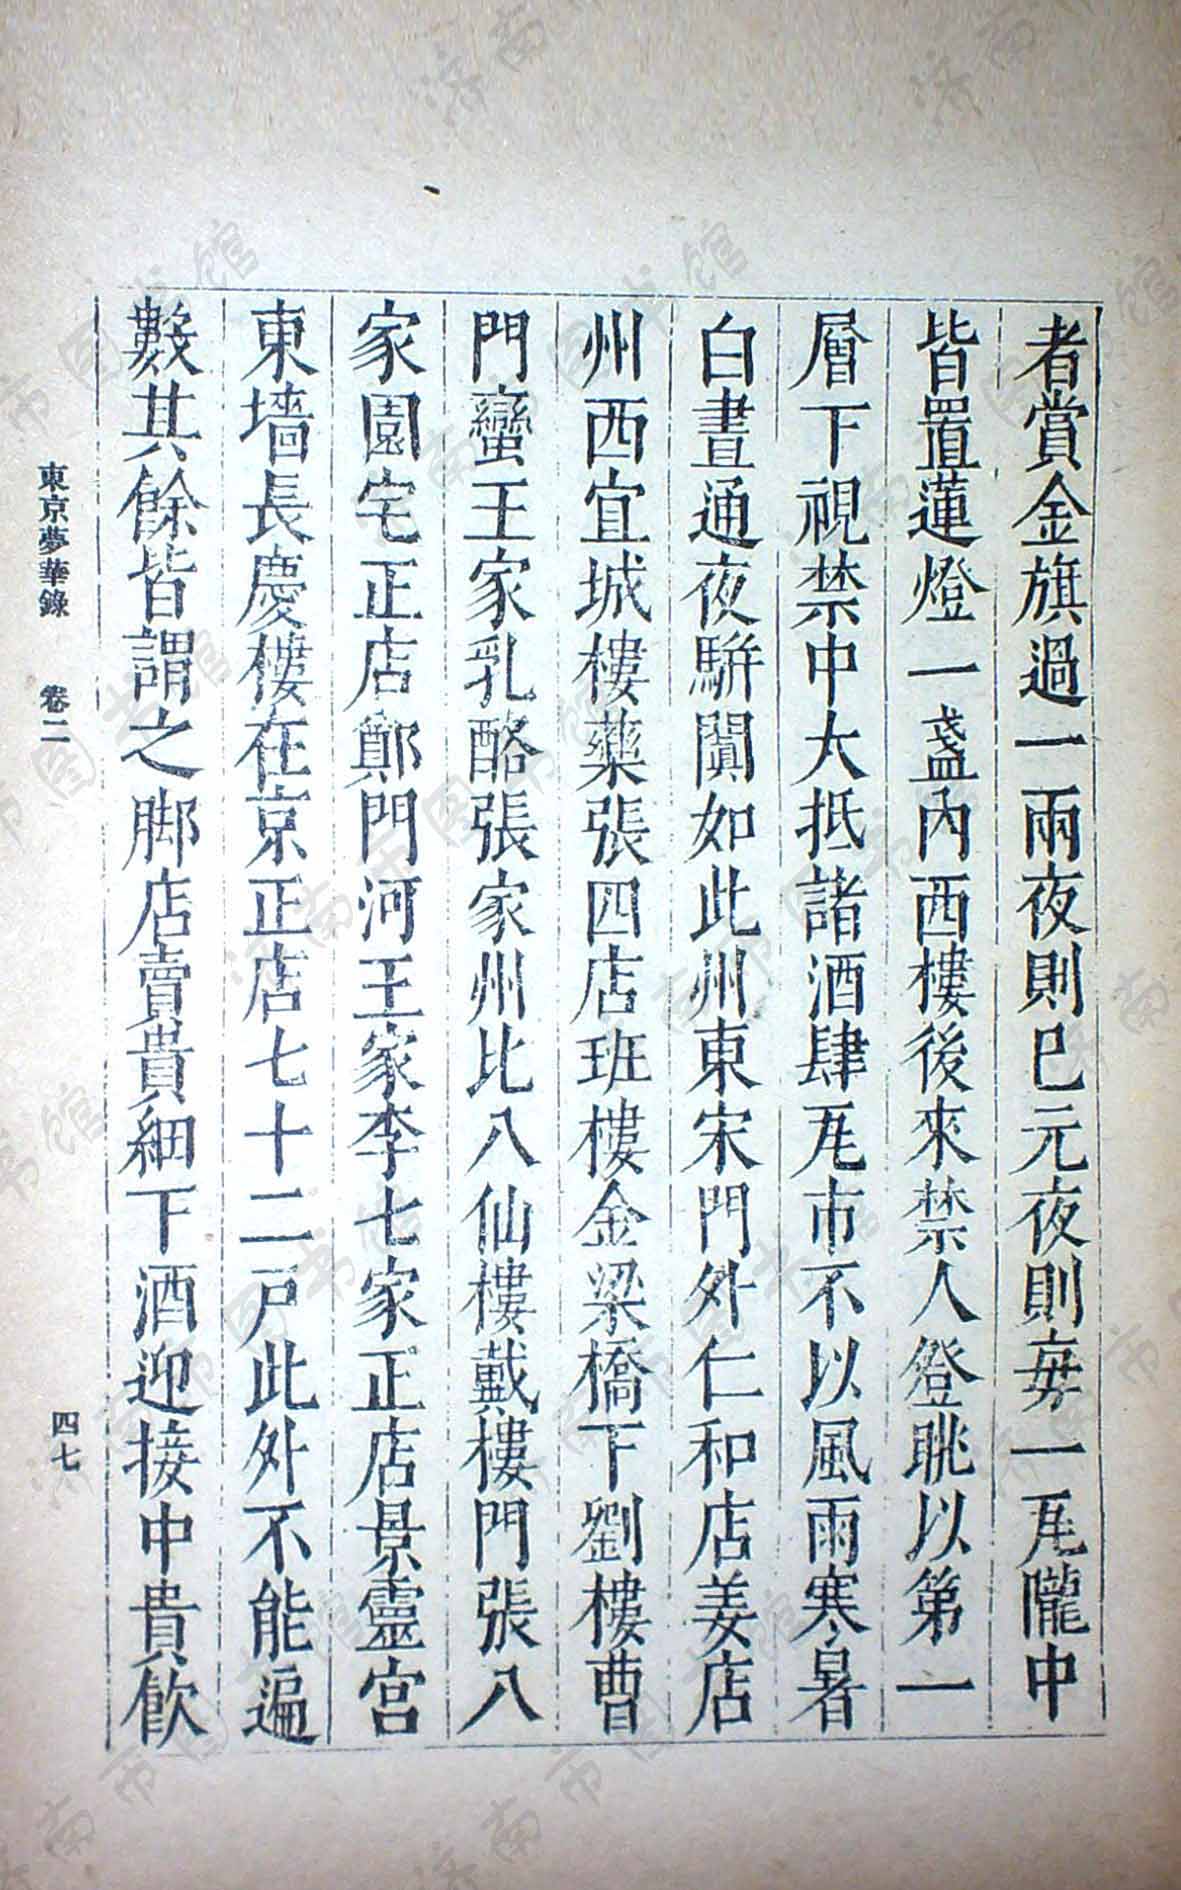 者賞金旗過一兩夜則已元夜則每一瓦隴中
皆置蓮燈一盞內西樓後來禁人登眺以第一
層下視禁中大抵諸酒肆瓦市不以風雨寒暑
白晝通夜駢闐如此州東宋門外仁和店姜店
州西宜城樓藥張四店班樓金梁橋下劉樓曹
門蠻王家乳酪張家州北八仙樓戴樓門張八
家園宅正店鄭門河王家李七家正店景靈宮
東墻長慶樓在京正店七十二戶此外不能遍
數其餘皆謂之脚店賣貴細下酒迎接中貴飲
東京夢華錄 卷二
四七
济南市图书馆